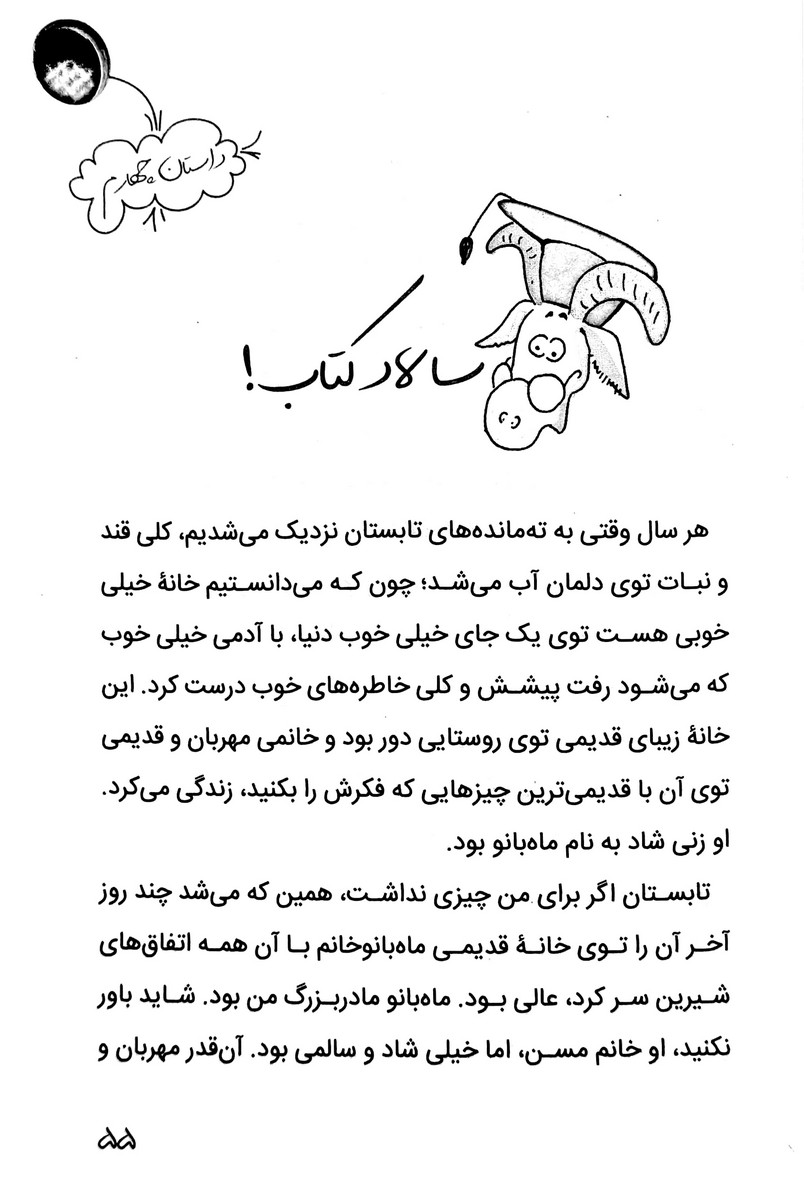 داستان چهارم
سالاد کتاب!
هر سال وقتی به ته‌مانده‌های تابستان نزدیک می‌شدیم، کلی قند
و نبات توی دلمان آب می‌شد؛ چون که می‌دانستیم خانهٔ خیلی
خوبی هست توی یک جای خیلی خوب دنیا، با آدمی خیلی خوب
که می‌شود رفت پیشش و کلی خاطره‌های خوب درست کرد. این
خانهٔ زیبای قدیمی توی روستایی دور بود و خانمی مهربان و قدیمی
توی آن با قدیمی‌ترین چیزهایی که فکرش را بکنید، زندگی می‌کرد.
او زنی شاد به نام ماه‌بانو بود.
تابستان اگر برای من چیزی نداشت، همین که می‌شد چند روز
آخر آن را توی خانهٔ قدیمی ماه‌بانوخانم با آن همه اتفاق‌های
شیرین سر کرد، عالی بود. ماه‌بانو مادربزرگ من بود. شاید باور
نکنید، او خانم مسن، اما خیلی شاد و سالمی بود. آن‌قدر مهربان و
۵۵